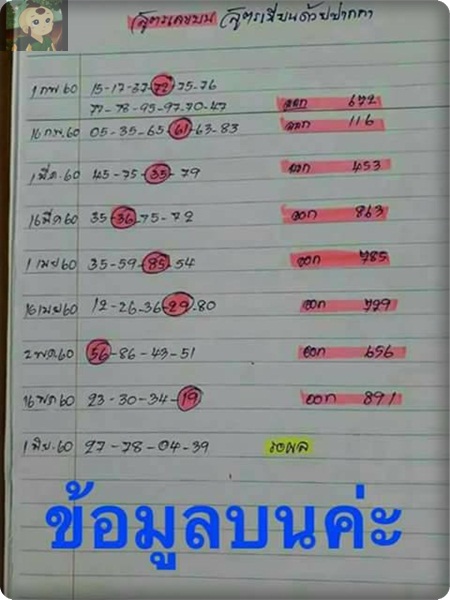 สูตรเลขบน สูตรเขียนด้วยปากกา
1 กพ 60 15-17-27-72-75-76
77-78-95-97-70-47 ออก 672
16 กพ.60 05-35-65-61-63-83 ออก 116
1 มีค.60 45-75-35-79 ออก 453
16 มีค 60 35-36-75-72 ออก 863
1 เมย 60 35-59-85-54 ออก 785
16 เมย 60 12-26-36-29-80 ออก 729
2 พค.60 56-86-43-51 ออก 656
16 พค 60 23-30-34-19 ออก 891
1 มิย.60 27-78-04-39 รอผล
ข้อมูลบนค่ะ